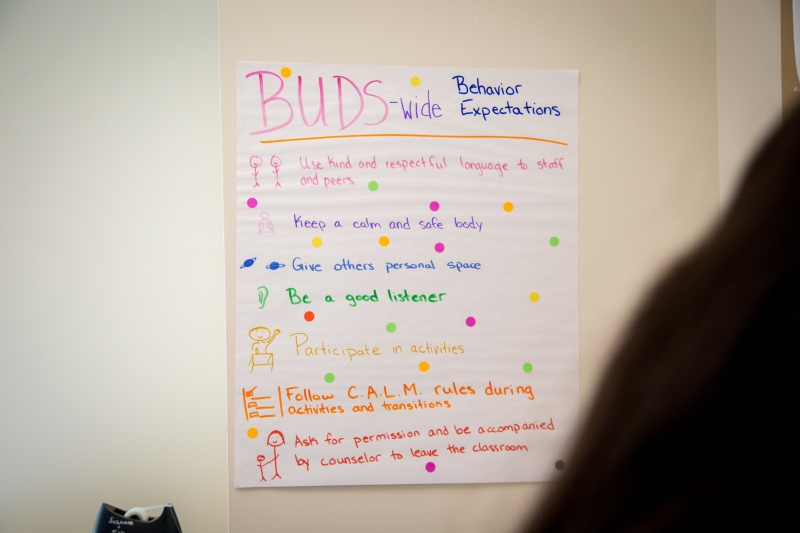 BUDS-wide Behavior
Expectations
Use kind and respectful language to staff
and peers
Keep a calm and safe body
Give others personal space
Be a good listener
Participate in activities
Follow C.A.L.M. rules during
activities and transitions
Ask for permission and be accompanied
by counselor to leave the classroom